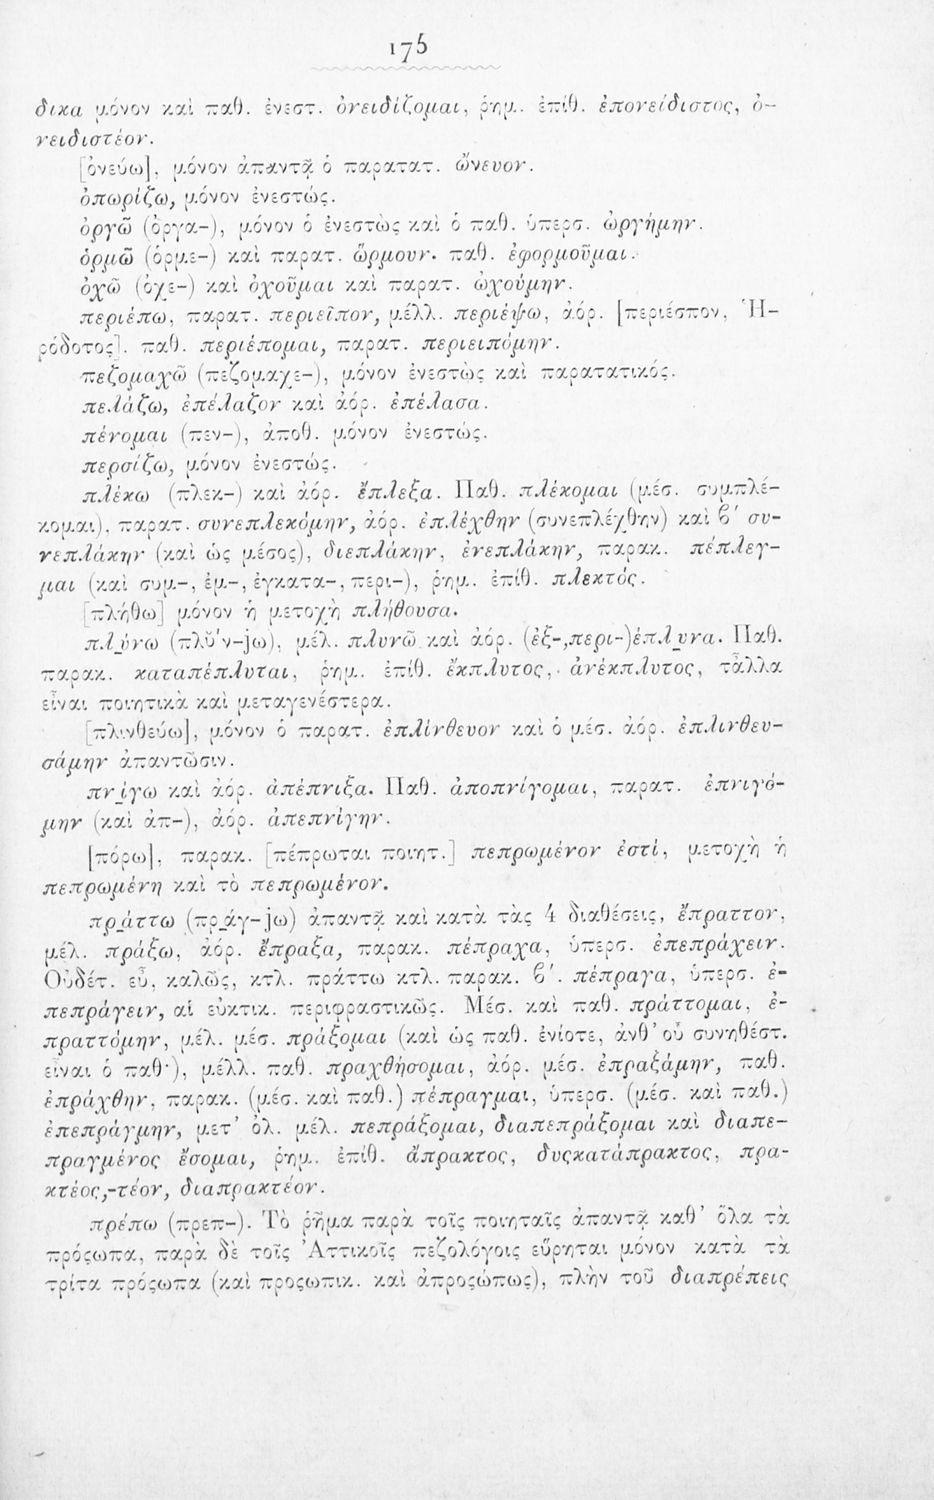 175
δικα μόνον καὶ παθ. ἐνεστ. ὀνειδίζομαι, ῥημ. ἐπίθ. ἐπονείδιστος, ὀ-
νειδιστέον.
[ὀνεύω], μόνον ἀπαντᾷ ὁ παρατατ. ὤνευον.
ὀπωρίζω, μόνον ἐνεστώς.
ὀργῶ (ὀργα-), μόνον ὁ ἐνεστὼς καὶ ὁ παθ. ὑπερσ. ὠργήμην.
ὁρμῶ (ὁρμε-) καὶ παρατ. ὥρμουν. παθ. ἐφορμοῦμαι.
ὀχῶ (ὀχε-) καὶ ὀχοῦμαι καὶ παρατ. ὠχούμην.
περιέπω, παρατ. περιεῖπον, μέλλ. περιέψω, ἀόρ. [περιέσπον, Ἡ-
ρόδοτος]. παθ. περιέπομαι, παρατ. περιειπόμην.
πεζομαχῶ (πεζομαχε-), μόνον ἐνεστὼς καὶ παρατατικός.
πελάζω, ἐπέλαζον καὶ ἀόρ. ἐπέλασα.
πένομαι (πεν-), ἀποθ. μόνον ἐνεστώς.
περσίζω, μόνον ἐνεστώς.
πλέκω (πλεκ-) καὶ ἀόρ. ἔπλεξα. Παθ. πλέκομαι (μέσ. συμπλέ-
κομαι), παρατ. συνεπλεκόμην, ἀόρ. ἐπλέχθην (συνεπλέχθην) καὶ β΄ συ-
νεπλάκην (καὶ ὡς μέσος), διεπλάκην, ἐνεπλάκην, παρακ. πέπλεγ-
μαι (καὶ συμ-, ἐμ-, ἐγκατα-, περι-), ῥημ. ἐπίθ. πλεκτός.
[πλήθω] μόνον ἡ μετοχὴ πλήθουσα.
πλυνω (πλῠ΄ν-jω), μέλ. πλυνῶ καὶ ἀόρ. (ἐξ-,περι-)ἐπλυνα. Παθ.
παρακ. καταπέπλυται, ῥημ. ἐπίθ. ἔκπλυτος, ἀνέκπλυτος, τἆλλα
εἶναι ποιητικὰ καὶ μεταγενέστερα.
[πλινθεύω], μόνον ὁ παρατ. ἐπλίνθευον καὶ ὁ μέσ. ἀόρ. ἐπλινθευ-
σάμην ἀπαντῶσιν.
πνίγω καὶ ἀόρ. ἀπέπνιξα. Παθ. ἀποπνίγομαι, παρατ. ἐπνιγό-
μην (καὶ ἀπ-), ἀόρ. ἀπεπνίγην.
[πόρω], παρακ. [πέπρωται ποιητ.] πεπρωμένον ἐστί, μετοχὴ ἡ
πεπρωμένη καὶ τὸ πεπρωμένον.
πράττω (πράγ-jω) ἀπαντᾷ καὶ κατὰ τὰς 4 διαθέσεις, ἔπραττον,
μέλ. πράξω, ἀόρ. ἔπραξα, παρακ. πέπραχα, ὑπερσ. ἐπεπράχειν.
Οὐδέτ. εὖ, καλῶς, κτλ. πράττω κτλ. παρακ. β΄. πέπραγα, ὑπερσ. ἐ-
πεπράγειν, αἱ εὐκτικ. περιφραστικῶς. Μέσ. καὶ παθ. πράττομαι, ἐ-
πραττόμην, μέλ. μέσ. πράξομαι (καὶ ὡς παθ. ἐνίοτε, ἀνθ' οὗ συνηθέστ.
εἶναι ὁ παθ·), μέλλ. παθ. πραχθήσομαι, ἀόρ. μέσ. ἐπραξάμην, παθ.
ἐπράχθην, παρακ. (μέσ. καὶ παθ.) πέπραγμαι, ὑπερσ. (μέσ. καὶ παθ.)
ἐπεπράγμην, μετ' ὀλ. μέλ. πεπράξομαι, διαπεπράξομαι καὶ διαπε-
πραγμένος ἔσομαι, ῥημ. ἐπίθ. ἄπρακτος, δυςκατάπρακτος, πρα-
κτέος,-τέον, διαπρακτέον.
πρέπω (πρεπ-). Τὸ ῥῆμα παρὰ τοῖς ποιηταῖς ἀπαντᾷ καθ' ὅλα τὰ
πρόςωπα, παρὰ δὲ τοῖς Ἀττικοῖς πεζολόγοις εὕρηται μόνον κατὰ τὰ
τρίτα πρόςωπα (καὶ προςωπικ. καὶ ἀπροςώπως), πλὴν τοῦ διαπρέπεις